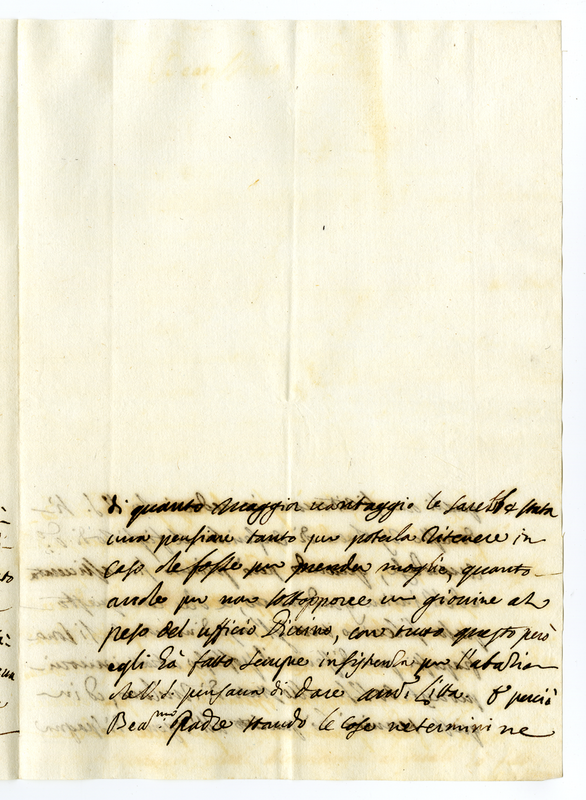 di quanto maggior vantaggio le sarebbe stata
una pensione tanto per poterla ritenere in
caso che fosse per prender moglie, quanto
anche per non sottoporre un giovine al
peso del ufficio Divino, con tutto questo però
egli hà fatto sempre insistenza per l'abadia
che V. S. pensava di dare E perciò
Bea.mo Padre stando le cose ne termini ne